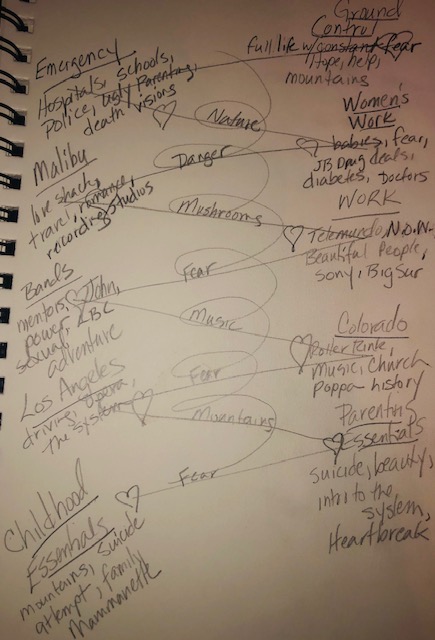 Ground
Control
full life w/ constant fear
hope, help,
mountains
Emergency
Hospitals, schools,
police, ugly Parenting,
death visions
Nature
Women's
Work
babies, fear,
JB Drug deals,
diabetes, Doctors
Malibu
love shack,
travel, romance,
recording studios
Danger
Mushrooms
WORK
Telemundo, N.O.W.
Beautiful People,
Sony, Big Sur
Bands
mentors, John,
power, LBC
sexual
adventure
Fear
Music
Colorado
Roller Rink,
Music, Church
Poppa history
Los Angeles
driving, opera,
the system
Fear
Mountains
Parenting
Essentials
suicide, beauty,
intro to the
system,
Heartbreak
Fear
Childhood
Essentials
mountains, suicide
attempt, family
Mammanette